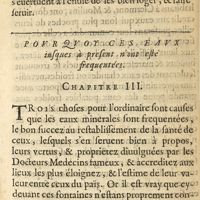 s'euertuent à l'enuie de les bien loger, & faire
seruir.
POVRQVOY CES EAVX
iusques à present n'ont esté
frequentées.
CHAPITRE III.
TROIS choses pour l'ordinaire sont causes
que les eaux minerales sont frequentées,
le bon succez au restablissement de la santé de
ceux, lesquels s'en seruent bien à propos,
leurs vertus, & proprietez diuulguées par les
Docteurs Medecins fameux, & accreditez aux
lieux les plus éloignez, & l'estime de leur va-
leur entre ceux du païs. Or il est vray que ey-
deuant ces fontaines n'estans proprement con-